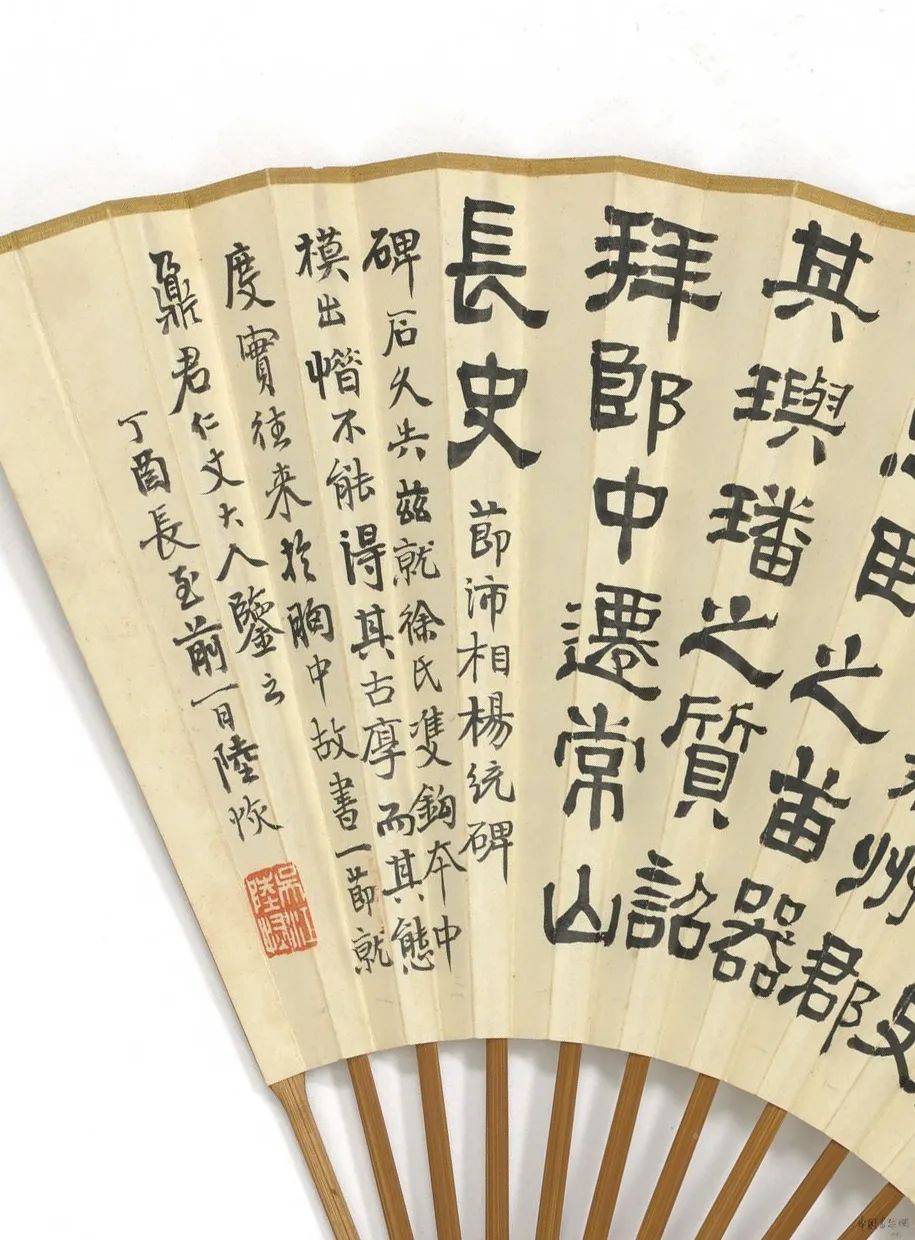 吏
州郡
之苗器
其璵璠之質詔
拜郎中遷常山
長史
節沛相楊統碑
碑石久失茲就徐氏雙鈎本中
模出惜不能得其古厚而其態
度實往來於胸中故書一節就
鼐君仁丈大人鑒之
丁酉長至前一日陸恢
吳江陸恢